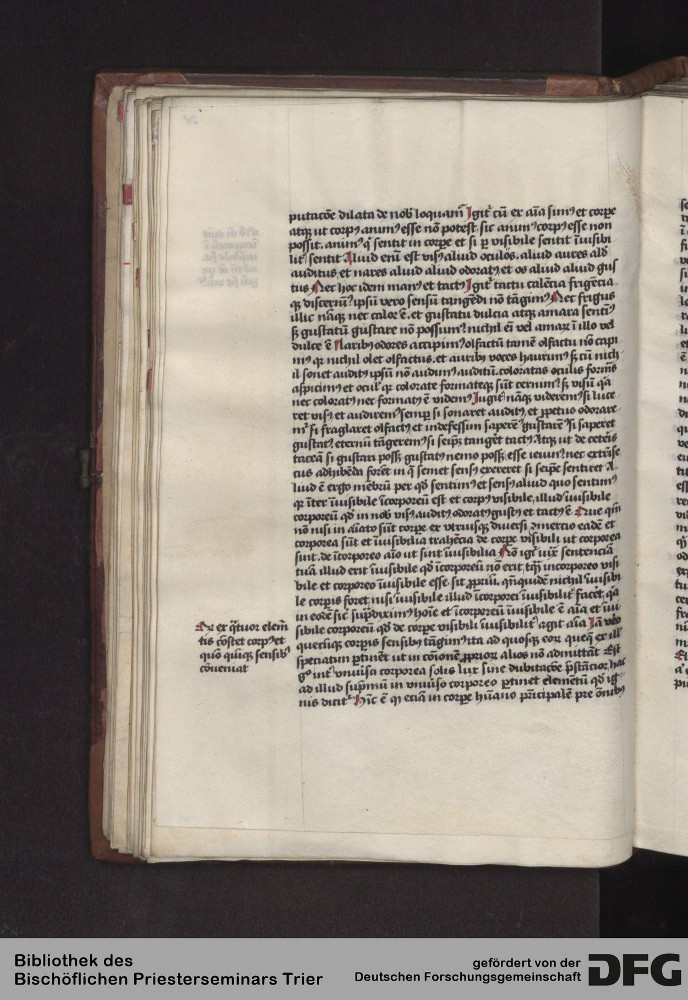 putacōe dilata de nob̄ loquam̄ Igit̄ cū ex aīa sim⁹ et corpe
atq̨ ut corp⁹ anim⁹ esse nō potest. sic anim⁹ corp⁹ esse non
possit. anim⁹ q̄ sentit in corpe et si p̱ visibile sentit īuisibi
lit̄ sentit Aliud enī est vis⁹ aliud oculos. aliud aures ald̄
auditus. et nares aliud aliud odorat⁹. et os aliud aliud gus
tus Nec hoc idem man⁹ et tact⁹ Igit̄ tactu calēcia frigēcia
q̨ discernim⁹ ipsū vero sensū tangēdi nō tāgim⁹ Nec frigus
illic nāq̨ nec calor ē. et gustatu dulcia atq̨ amara sentim⁹
s̨ gustatū gustare nō possum⁹ nichil eī vel amar̄ ī illo vel
dulce ē Narib⁹ odores accipim⁹ olfactū tamē olfactu nō capi
m⁹ qr nichil olet olfactus. et aurib⁹ voces haurim⁹ s̨ cū nich
il sonet audit⁹ ipsū nō audim⁹ auditū. coloratas oculis form̄s
aspicim⁹ et ocul⁹ qr colorate formateq̨ sūt cernim⁹ s̨ visū q̄a
nec colorat⁹ nec format⁹ ē videm⁹ Iugit̄ nāq̨ viderem⁹ si luce
ret vis⁹ et audirem⁹ semp̱ si sonaret audit⁹. et p̱petuo odorare
m̄ si fraglaret olfact⁹. et indefessim saperē gustarē si saperet
gustat⁹. eternū tāgerem⁹ si seip̄s tanget tact⁹ Atq̨ ut de ceteris
taceā si gustari poss̨ gustat⁹ nemo poss̨ esse ieiun⁹ nec extrīse
cus adhibēda forēt in q̄ semet sens⁹ exereret si seip̄e sentiret A
liud ē ergo mēbrū per qd̄ sentim⁹ et sens⁹ aliud quo sentim⁹
qr īter īuisibile īcorporeū est et corp⁹ visibile. illud īuisibile
corporeū qd̄ in nob vis⁹ audit⁹ odorat⁹ gust⁹ et tact⁹ ē Que qm̄
nō nisi in aīato sūt corpe ex vtriusq̨ diuersi ɔmercio eadē et
corporea sūt et īuisibilia trahēcia de corpe visibili ut corporea
sint. de īcorporeo aīo ut sint īuisibilia Nō igit̄ iux̄ sentenciā
tuā illud erit īuisibile qd̄ īcorporeū nō erit. tq̄ incorporeo visi
bile et corporeo īuisibile esse sit p̱priū. qn̄quidē nichil īuisibi
le corp̱is foret nisi īuisibile illud īcorporei īuisibilit̄ facēt. q̄a
in eodē sic sup̄diximus hoīe et īcorporeū īuisibile ē aīa et īui
sibile corporeū qd̄ de corpe visibili īuisibilit̄ agit aīa Iā vero
quecūq̨ corp̱is sensib⁹ tāgim⁹ ita ad quosq̨ eor̄ queq̨ ex ill⁹
speciatim p̱tinēt ut in cōionē p̱prior̄ alios nō admittāt Est
gͦ int̄ vniu̇sa corporea solis lux sine dubitacōe p̄stācior̄ hac
ad illud sup̄mū in vniu̇so corporeo p̱tinet elemētū qd̄ ig
nis dicit̄ Hīc ē qr eciā in corpe hūano p̄ncipalē pre ōnib⁹
An ex q̄tuor elem̄
tis cōstet corp⁹ et
quo quīq̨ sensib⁹
cōueniat
Bibliothek des
Bischöflichen Priesterseminars Trier
gefördert von der
Deutschen Forschungsgemeinschaft
DFG